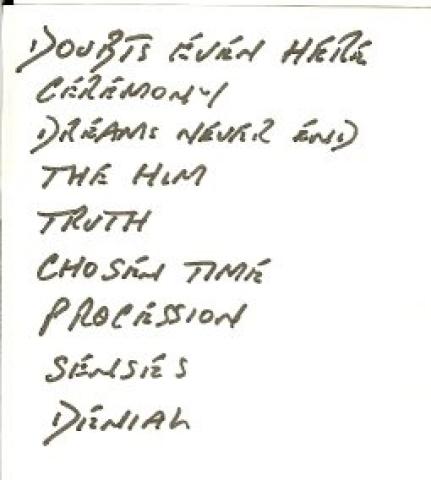 DOUBTS EVEN HERE
CEREMONY
DREAMS NEVER END
THE HIM
TRUTH
CHOSEN TIME
PROCESSION
SENSES
DENIAL